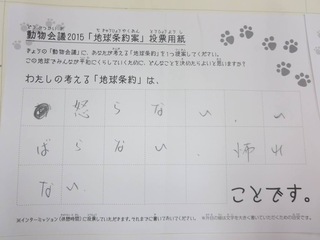 動物会議2015「地球条約案」投票用紙
きょうの「動物会議」に、あなたが考える「地球条約」を1つ提案してください。
この地球でみんなが平和にくらしていくために、どんなことを決めたらよいと思いますか?
わたしの考える「地球条約」は、
怒らない、い
ばらない、怖れ
ない
ことです。
※インターミッション(休憩時間)に投票していただきます。それまでに書いておいてください。